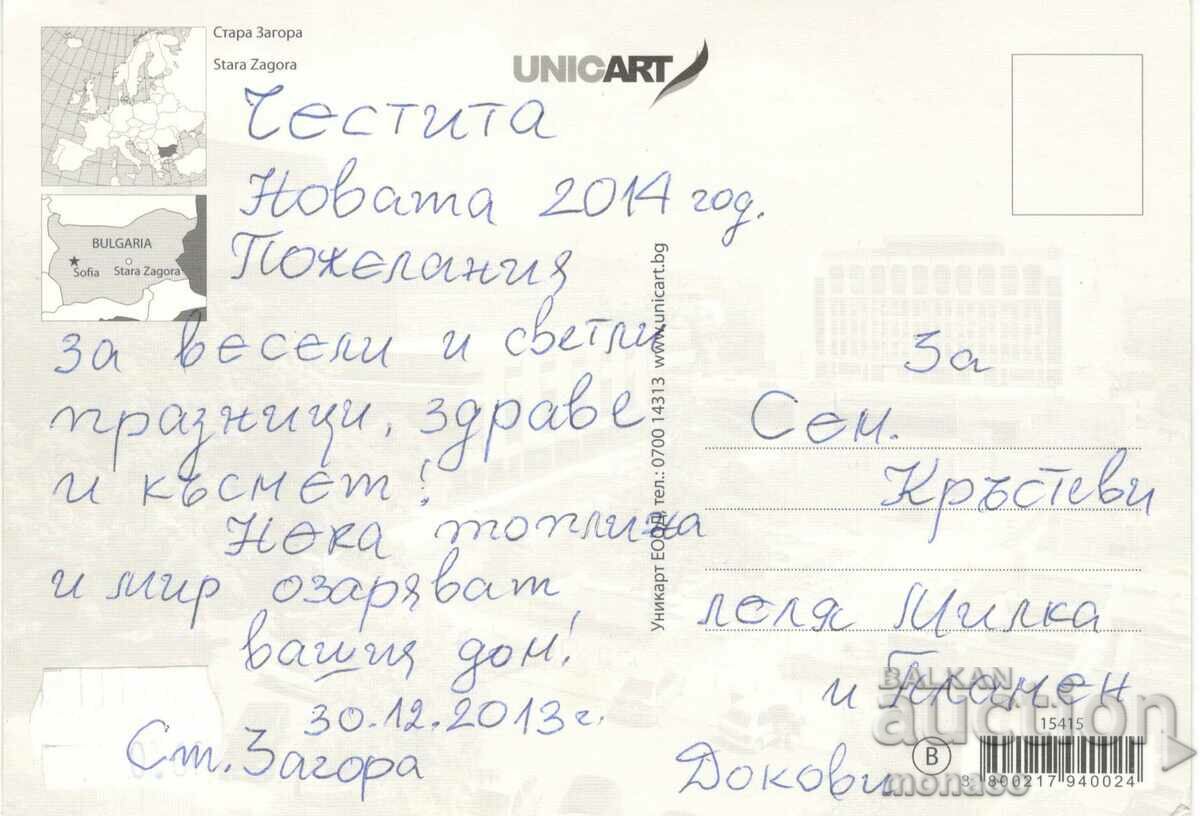 Стара Загора
Stara Zagora
UNICART
BULGARIA
Sofia
Stara Zagora
Честита
Новата 2014 год.
Пожелания
за весели и светли
празници, здраве
и късмет!
Нека топлина
и мир озаряват
вашия дом!
30.12.2013г.
Ст. Загора
Уникарт ЕООД, тел.: 0700 14313 www.unicart.bg
За
Сем.
Кръстеви
леля Милка
и Пламен
Докови
BALKAN
auction
monaco
15415
B
3 800217 940024